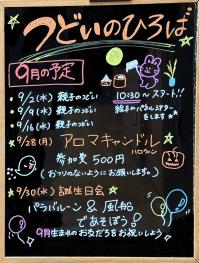 つどいのひろば
9月の予定
9/2(水) 親子のつどい
9/9(水) 親子のつどい
9/16(水) 親子のつどい
10:30〜スタート!!
絵本やパネルシアターを
します☆
9/28(月) アロマキャンドル
ハロウィン
参加費 500円
(おつりのないようにお願いします。)
9/30(水) 誕生日会
パラバルーン & 風船
であそぼう!
9月生まれのお友だちをお祝いしよう